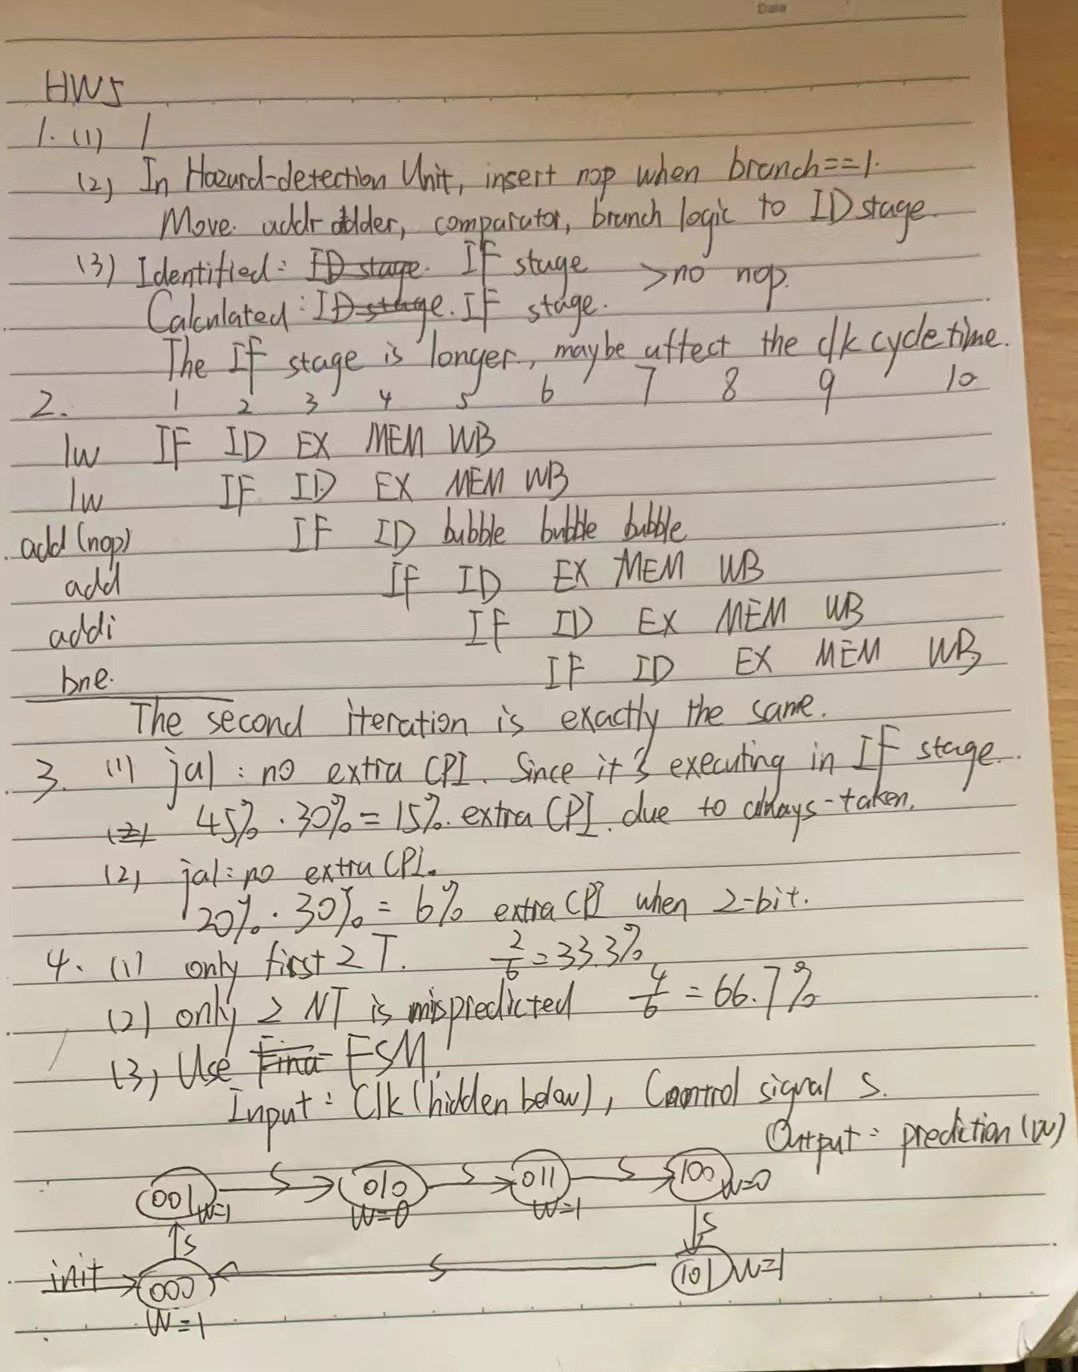 Date
HW5
1. (1) 1
(2) In Hazurd-detection Unit, insert nop when branch==1.
Move addr adder, comparator, branch logic to ID stage.
(3) Identified: ID stage. IF stage >no nop.
Calculated: ID stage. IF stage.
The IF stage is longer, maybe affect the clk cycle time.
2. 1 2 3 4 5 6 7 8 9 10
lw IF ID EX MEM WB
lw IF ID EX MEM WB
add(nop) IF ID bubble bubble bubble
add IF ID EX MEM WB
addi IF ID EX MEM WB
bne. IF ID EX MEM WB
The second iteration is exactly the same.
3. (1) jal: no extra CPI. Since it's executing in IF stage.
(2) 45% · 30% = 15% extra CPI. due to always-taken.
(2) jal: no extra CPI.
20% · 30% = 6% extra CPI when 2-bit.
4. (1) only first 2 T. 2/6 = 33.3%
(2) only 2 NT is mispredicted 4/6 = 66.7%
(3) Use Fina FSM.
Input: Clk (hidden below), Control signal S.
Output: prediction (W)
001 W=1 S 010 W=0 S 011 W=1 S 100 W=0
S S
init 000 W=1 S 101 W=1